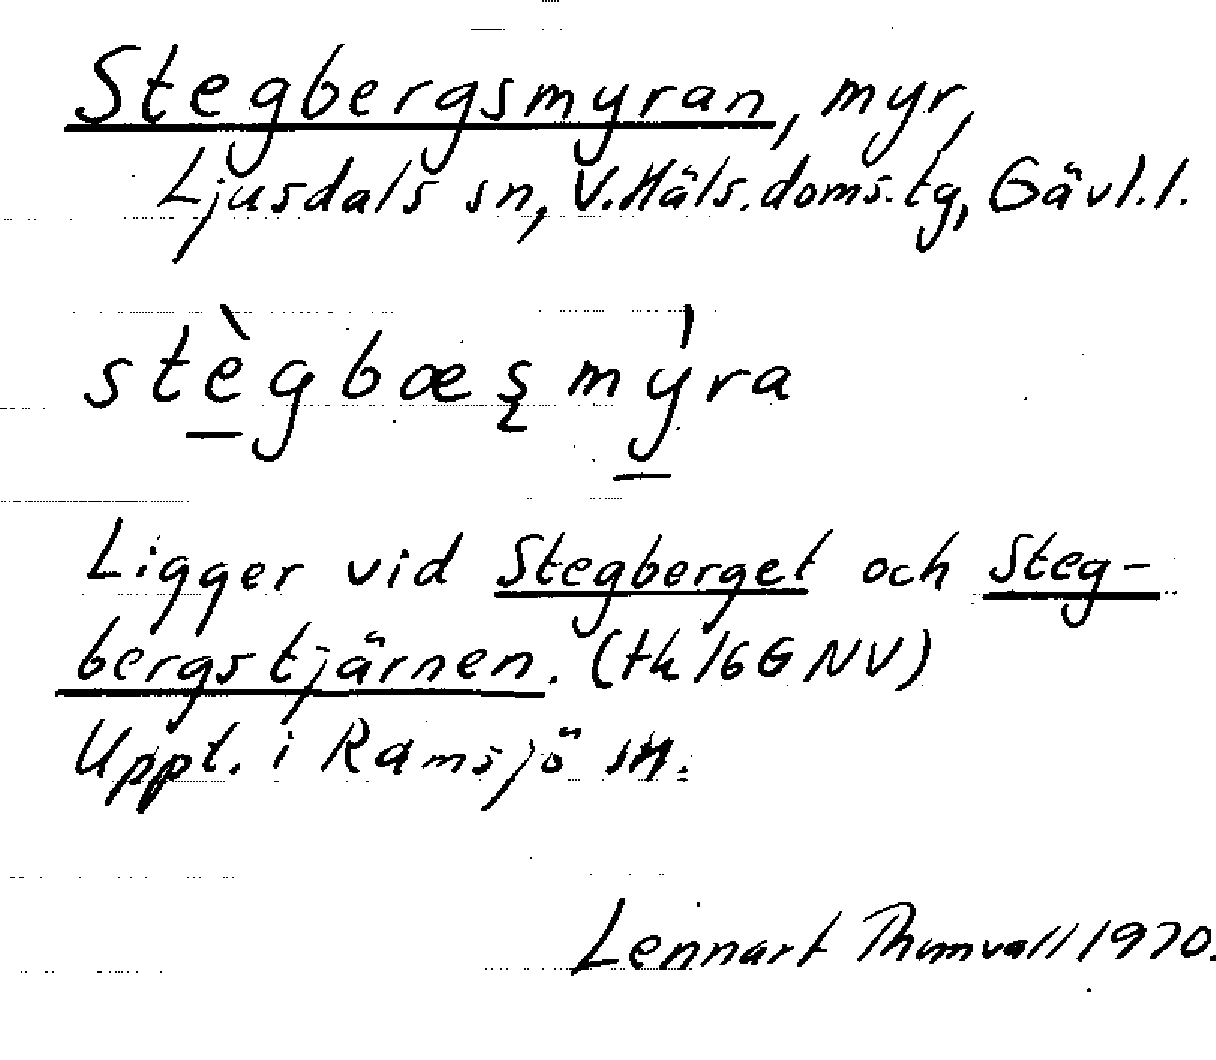 Stegbergsmyran, myr,
Ljusdals sn, V.Häls.doms.tg, Gävl.l.
stè̱gbæʂmý̱ra
Ligger vid Stegberget och Steg-
bergstjärnen. (tk 16G NV)
Uppt. i Ramsjö sn.
Lennart 1970.